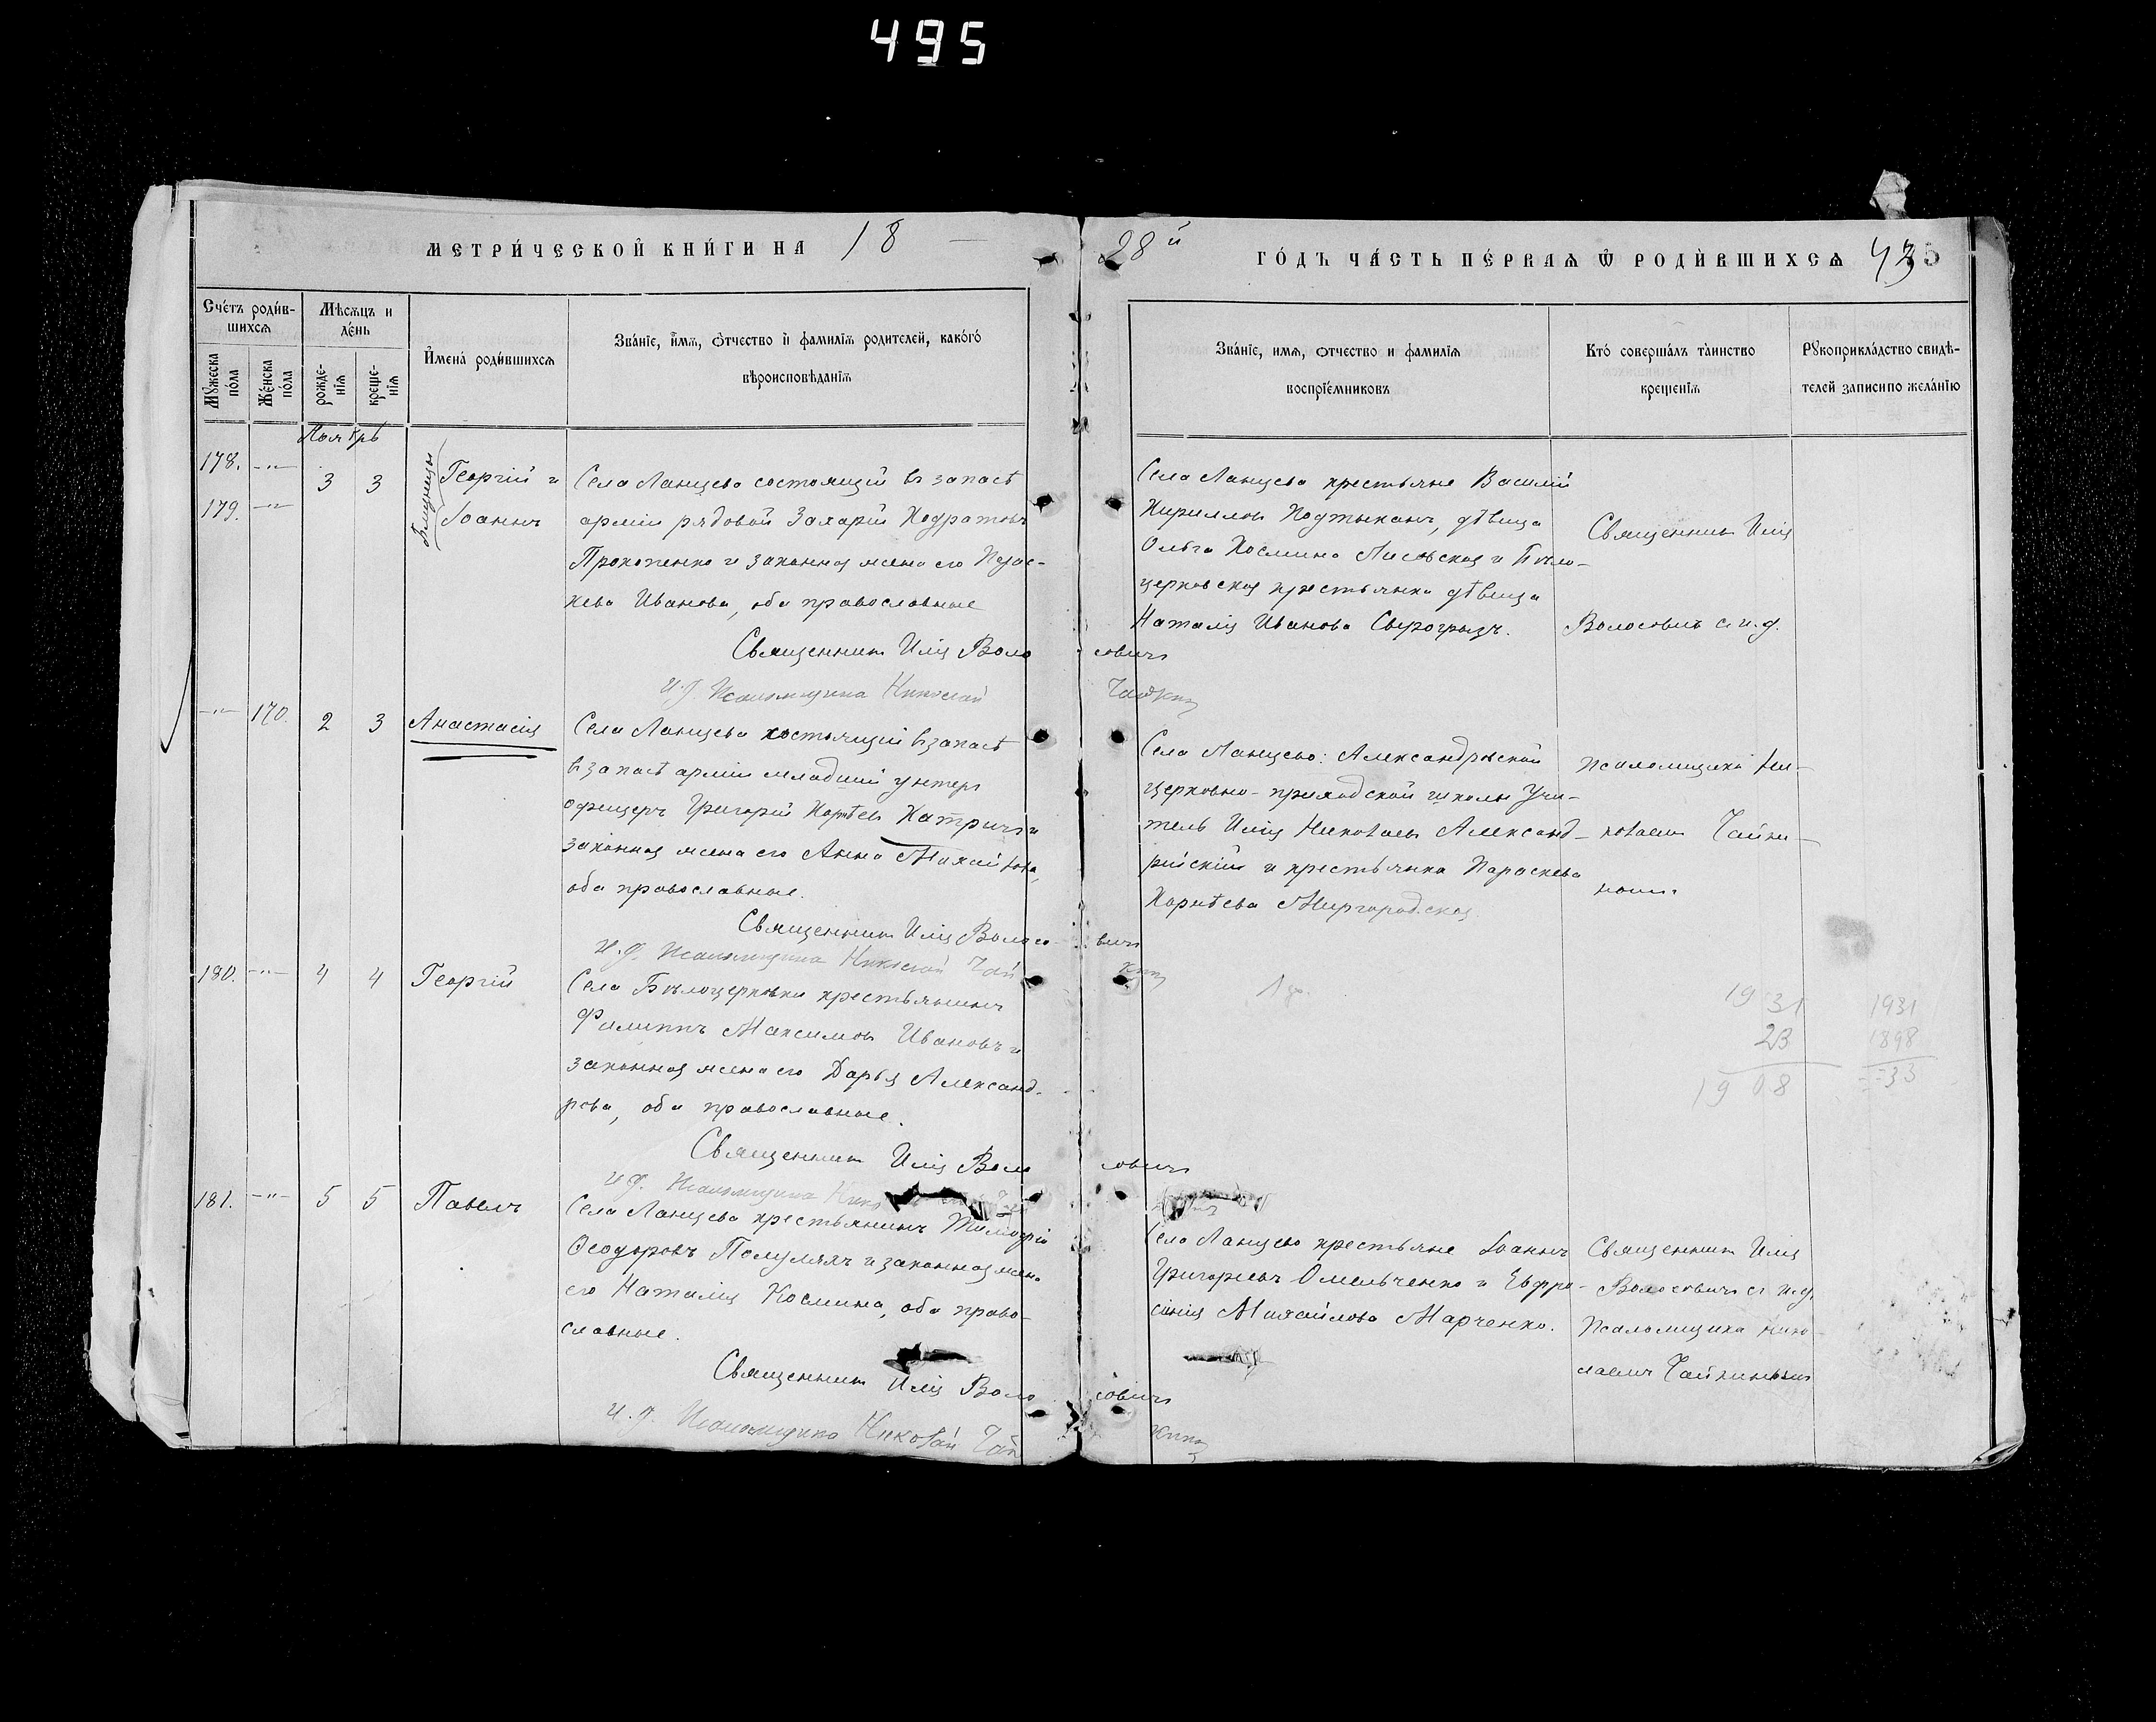 495
МЕТРИ́ЧЕСКОЙ КНИ́ГИ НА 18
28й ГО́ДЪ ЧА́СТЬ ПЕ́РВАѦ Ѿ РОДИ́ВШИХСѦ
Сче́тъ роди́в-
шихсѧ
Мѣ́сѧцъ и
де́нь
Мꙋжеска по́ла
Же́нска по́ла
рожде́-
нїѧ
креще́-
нїѧ
И҆мена́ роди́вшихсѧ
Зва́нїе, и҆́мѧ, о҆́тчество и҆ фамилїѧ родителей, како́гѡ
вѣроисповѣданїѧ
Зва́нїе, имѧ, отчество и фамилїѧ
воспрїе́мниковъ
Кто́ соверша́лъ та́инство
креще́нїѧ
Рꙋкоприкла́дство свидѣ́-
телей записи по жела́нїю
178. —"—
179. —"—
3 3
Близнецы
Георгій и
Іоаннъ
Села Ланцева состоящій въ запасѣ
арміи рядовой Захарій Кодратовъ
Прокопенко и законная жена его Парас-
кева Иванова, оба православные
Священникъ Илія Воло совичъ
И. д. Псаломщика Николай
Села Ланцева крестьяне Василій
Кирилловъ Подтыканъ, дѣвица
Ольга Космина и Бѣло-
церковская крестьянка дѣвица
Наталія Иванова Сырогрызъ.
Священникъ Илія
Волосовичъ с. и. д.
—"— 170. 2 3 Анастасія
Села Ланцева состоящій въ запасѣ
въ запасѣ арміи младшій унтеръ
офицеръ Григорій Катричъ и
законная жена его Анна Михайлова,
оба православные.
Священникъ Илія Волосо вичъ
И. д. Псаломщика Николай Чай кинъ
Села Ланцева: Александровской
церковно-приходской школы учи-
тель Илія Николаевъ Александ-
рийскій и крестьянка Параскева
Корнѣева Миргородская.
Псаломщика Ни-
колаемъ Чайки-
нымъ
180. —"— 4 4 Георгій
Села Бѣлоцерковки крестьянинъ
Филиппъ Максимовъ Ивановъ и
законная жена его Дарья Александ-
рова, оба православные.
Священникъ Илія Воло совичъ
И. д. Псаломщика
1931
23
1908
1931
1898
33
181. —"— 5 5 Павелъ
Села Ланцева крестьянинъ Тимофій
Ѳеодоровъ Полуляхъ и законная жена
его Наталія Космина, оба право-
славные.
Священникъ Илія Воло совичъ
И. д. Псаломщика Николай Чай кинъ
Села Ланцева крестьяне Іоаннъ
Григорьевъ Омельченко и Евфро-
синія Михайлова Марченко.
Священникъ Илія
Волосовичъ съ и. д.
Псаломщика Нико-
лаемъ Чайкинымъ